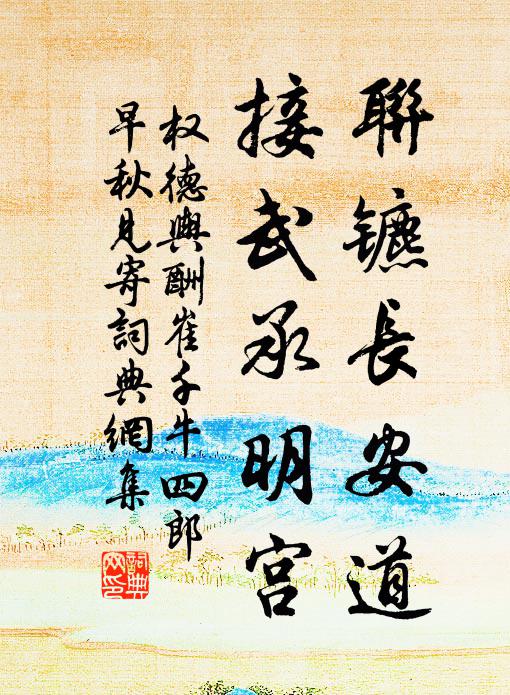 聯鑣長安道
接武承明宮
权德輿酬崔千牛四郎
早秋見寄詞典網集
詞典
网印